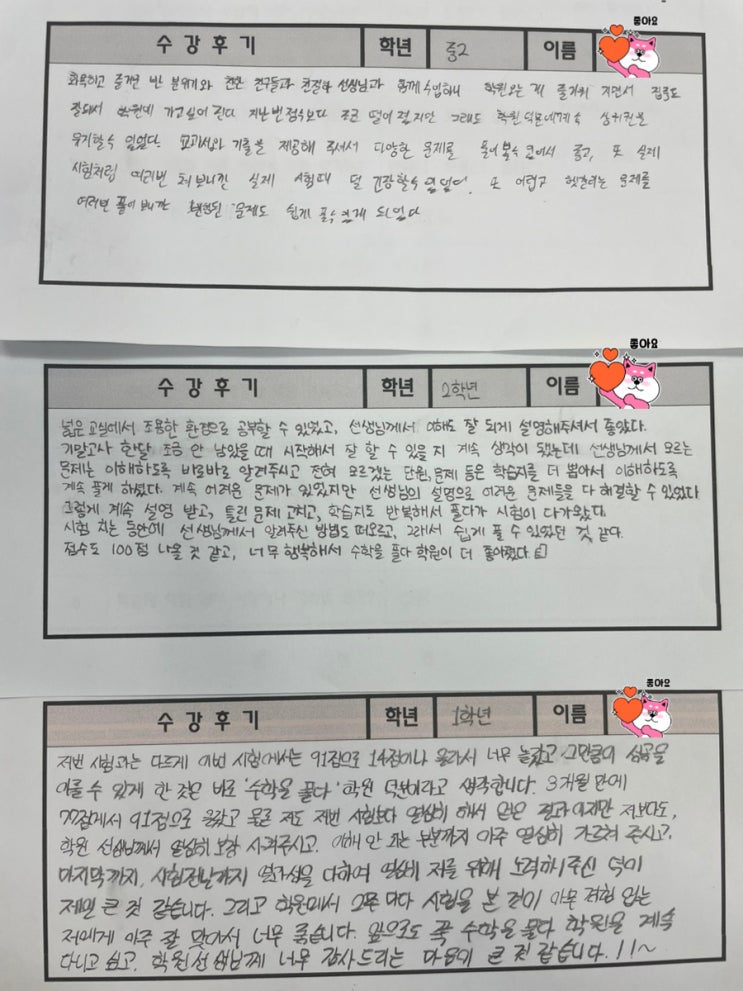 좋아요
수 강 후 기 학년 중2 이름
화목하고 즐거운 반 분위기와 친한 친구들과 친절하신 선생님과 함께 수업하니 학원오는 게 즐거워 지면서 집중도
잘돼서 학원에 가고싶어 진다 지난번 점수보다 조금 떨어 졌지만 그래도 학원 덕분에 계속 상위권을
유지할수 있었다. 교과서와 기출을 제공해 주셔서 다양한 문제를 풀어볼수 있어서 좋고, 또 실제
시험처럼 여러번 쳐 보니깐 실제 시험때 덜 긴장할수 있었다. 또 어렵고 헷갈리는 문제를
여러번 풀어 보니깐 변형된 문제도 쉽게 풀수 있게 되었다
좋아요
수 강 후 기 학년 2학년 이름
넓은 교실에서 조용한 환경으로 공부할 수 있었고, 선생님께서 이해도 잘 되게 설명해주셔서 좋았다.
기말고사 한달 조금 안 남았을 때 시작해서 잘 할 수 있을 지 계속 생각이 됐는데 선생님께서 모르는
문제는 이해하도록 바로바로 알려주시고 전혀 모르겠는 단원, 문제 등은 학습지를 더 뽑아서 이해하도록
계속 풀게 하셨다. 계속 어려운 문제가 있었지만 선생님의 설명으로 어려운 문제들을 다 해결할 수 있었다
그렇게 계속 설명 받고, 틀린 문제 고치고, 학습지도 반복해서 풀다가 시험이 다가왔다.
시험 치는 동안에 선생님께서 알려주신 방법도 떠오르고, 그래서 쉽게 풀 수 있었던 것 같다.
점수도 100점 나올 것 같고, 너무 행복해서 수학을 풀다 학원이 더 좋아졌다.
좋아요
수 강 후 기 학년 1학년 이름
저번 시험과는 다르게 이번 시험에서는 91점으로 14점이나 올라서 너무 놀랐고 그만큼의 성공을
이룰 수 있게 한 것은 바로 '수학을 풀다' 학원 덕분이라고 생각합니다. 3개월 만에
77점에서 91점으로 올랐고 물론 저도 저번 시험보다 열심히 해서 얻은 결과이지만 저보다도,
학원 선생님께서 열심히 보강 시켜주시고. 이해 안 되는 부분까지 아주 열심히 가르쳐 주시고,
마지막까지, 시험전날까지 열과성을 다하여 열심히 저를 위해 노력해주신 덕이
제일 큰 것 같습니다. 그리고 학원에서 오푼 마다 시험을 본 것이 아무 경험 없는
저에게 아주 잘 맞아서 너무 좋습니다. 앞으로도 꼭 수학을 풀다 학원을 계속
다니고 싶고. 학원선생님께 너무 감사드리는 마음이 큰 것 같습니다.!!~